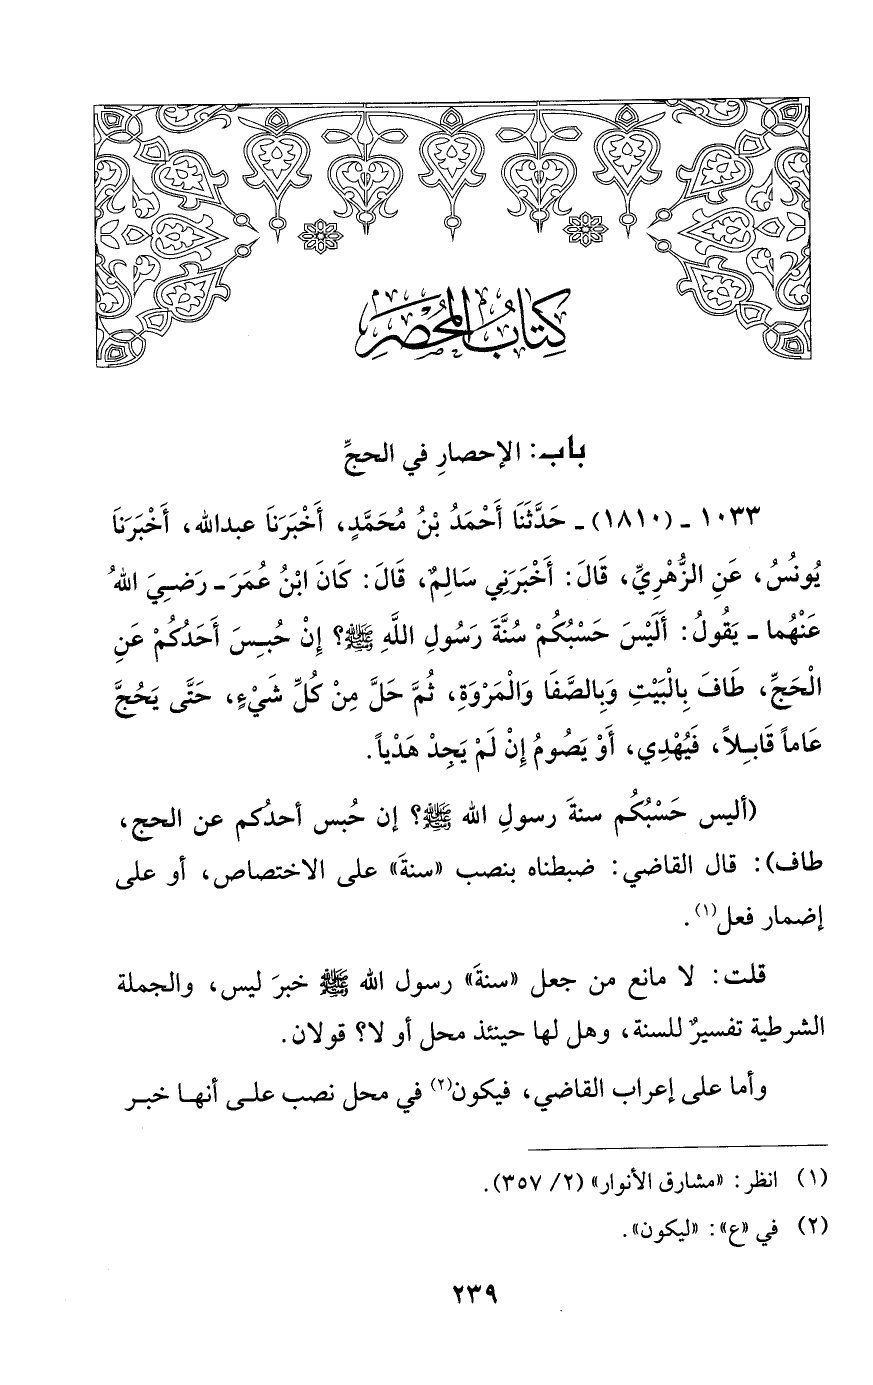 كِتَابُ المُحْصَرِ
باب: الإحصارِ في الحجِّ
١٠٣٣ ـ (١٨١٠) ـ حَدَّثَنَا أَحْمَدُ بْنُ مُحَمَّدٍ، أَخْبَرَنَا عبدالله، أَخْبَرَنَا
يُونُسُ، عَنِ الزُّهْرِيِّ، قَالَ: أَخْبَرَنِي سَالِمٌ، قَالَ: كَانَ ابْنُ عُمَرَ ـ رَضِيَ اللهُ
عَنْهُما ـ يَقُولُ: أَلَيْسَ حَسْبُكُمْ سُنَّةَ رَسُولِ اللَّهِ ﷺ؟ إِنْ حُبِسَ أَحَدُكُمْ عَنِ
الْحَجِّ، طَافَ بِالْبَيْتِ وَبِالصَّفَا وَالْمَرْوَةِ، ثُمَّ حَلَّ مِنْ كُلِّ شَيْءٍ، حَتَّى يَحُجَّ
عَاماً قَابِلاً، فَيُهْدِي، أَوْ يَصُومُ إِنْ لَمْ يَجِدْ هَدْياً.
(أليس حَسْبُكُم سنةَ رسولِ الله ﷺ؟ إن حُبس أحدُكم عن الحج،
طاف): قال القاضي: ضبطناه بنصب «سنةَ» على الاختصاص، أو على
إضمار فعل(١).
قلت: لا مانع من جعل «سنةَ» رسول الله ﷺ خبرَ ليس، والجملة
الشرطية تفسيرٌ للسنة، وهل لها حينئذ محل أو لا؟ قولان.
وأما على إعراب القاضي، فيكون(٢) في محل نصب على أنها خبر
(١) انظر: «مشارق الأنوار» (٢/ ٣٥٧).
(٢) في «ع»: «ليكون».
٢٣٩